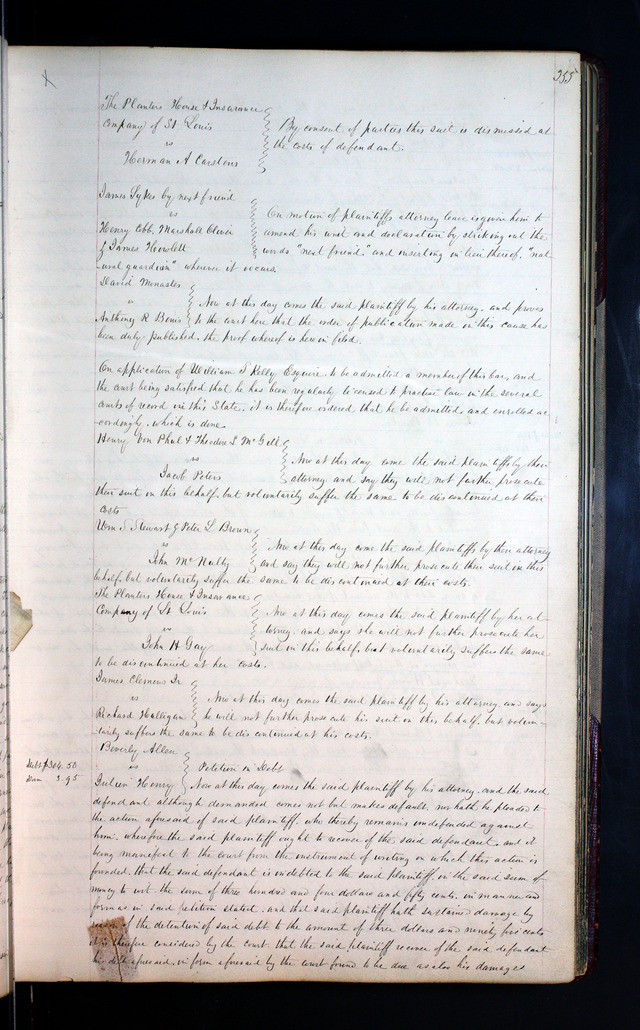 355
The Planters House & Insurance
Company of St Louis
vs
Herman A Carstens
By consent of parties this suit is dismissed at
the costs of defendant.
James Sykes by next friend
vs
Henry Cobb, Marshall Olivir
& James Howlett
On motion of plaintiffs attorney leave is given him to
amend his writ and declaration by striking out the
words "next friend" and inserting in lieu thereof, "nat-
-ural guardian" wherever it occurs
David
vs
Anthony R Bouis
Now at this day comes the said plaintiff by his attorney, and proves
to the court here that the order of publication made in this cause has
been duly published, the proof whereof is herein filed.
On application of William S Kelly Esquire to be admitted a member of this bar, and
the court being satisfied that he has been regularly licensed to practise law in the several
courts of record in this State, it is therefore ordered that he be admitted and enrolled ac-
-cordingly, which is done.
Henry Von Phul & Theodore L McGill
vs
Jacob Peters
Now at this day come the said plaintiffs by their
attorney and say they will not further prosecute
their suit in this behalf, but voluntarily suffer the same to be discontinued at their
costs
Wm S Stewart & Peter L Brown
vs
John McNulty
Now at this day come the said plaintiffs by their attorney
and say they will not further prosecute their suit in this
behalf, but voluntarily suffer the same to be discontinued at their costs.
The Planters House & Insurance
Company of St Louis
vs
John H Gay
Now at this day comes the said plaintiff by her at-
torney, and says she will not further prosecute her
suit in this behalf, but voluntarily suffers the same
to be discontinued at her costs.
James Clemens Jr
vs
Richard Halligan
Now at this day comes the said plaintiff by his attorney, and says
he will not further prosecute his suit in this behalf, but volun-
-tarily suffers the same to be discontinued at his costs.
Beverly Allen
vs
Petition in Debt
Debt $304.50
3.95
Julien Henry
Now at this day comes the said plaintiff by his attorney, and the said
defendant although demanded comes not but makes default, nor hath he pleaded to
the action aforesaid of said plaintiff, who thereby remains undefended against
him, wherefore the said plaintiff ought to recover of the said defendant, and it
being manifest to the court from the instrument of writing on which this action is
founded, that the said defendant is indebted to the said plaintiff in the said sum of
money to wit, the sum of three hundred and four dollars and fifty cents, in manner and
form as in said petition stated, and that said plaintiff hath sustained damage by
of the detention of said debt to the amount of three dollars and ninety five cents
it is therefore considered by the court that the said plaintiff recover of the said defendant
his debt aforesaid, in form aforesaid by the court found to be due as also his damages